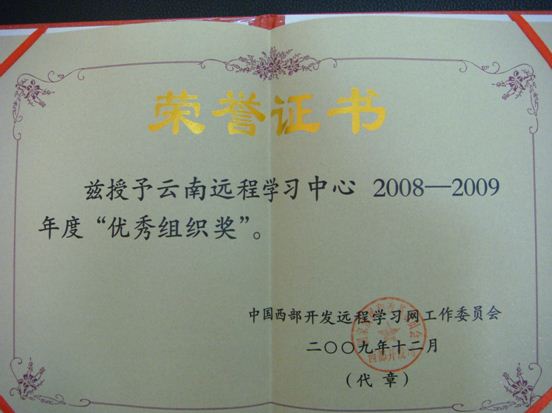 荣誉证书
兹授予云南远程学习中心 2008—2009
年度“优秀组织奖”。
中国西部开发远程学习网工作委员会
二〇〇九年十二月
（代章）